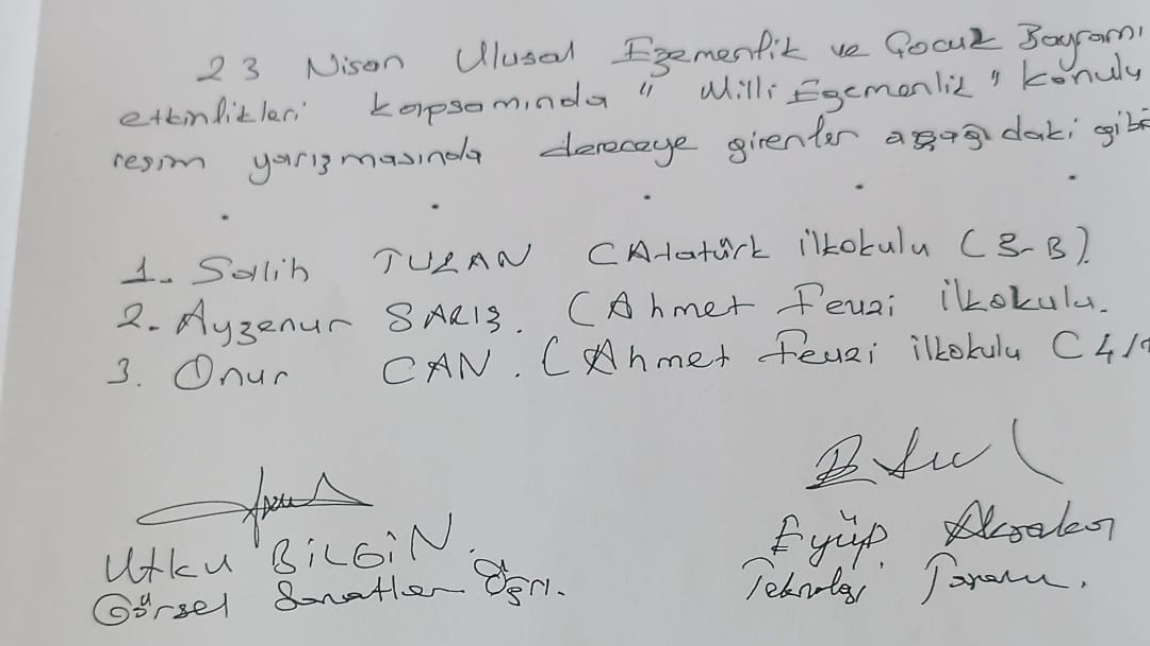 23 Nisan Ulusal Egemenlik ve Çocuk Bayramı
etkinlikleri kapsamında "Milli Egemenlik" konulu
resim yarışmasında dereceye girenler aşağıdaki gibi
1. Salih TURAN (Atatürk ilkokulu (3-B).
2. Ayşenur SARIŞ. (Ahmet Fevzi ilkokulu.
3. Onur CAN. (Ahmet Fevzi ilkokulu (4/
Utku BİLGİN.
Görsel Sanatlar Öğrt.
Eyüp
Teknoloji Tasarım.